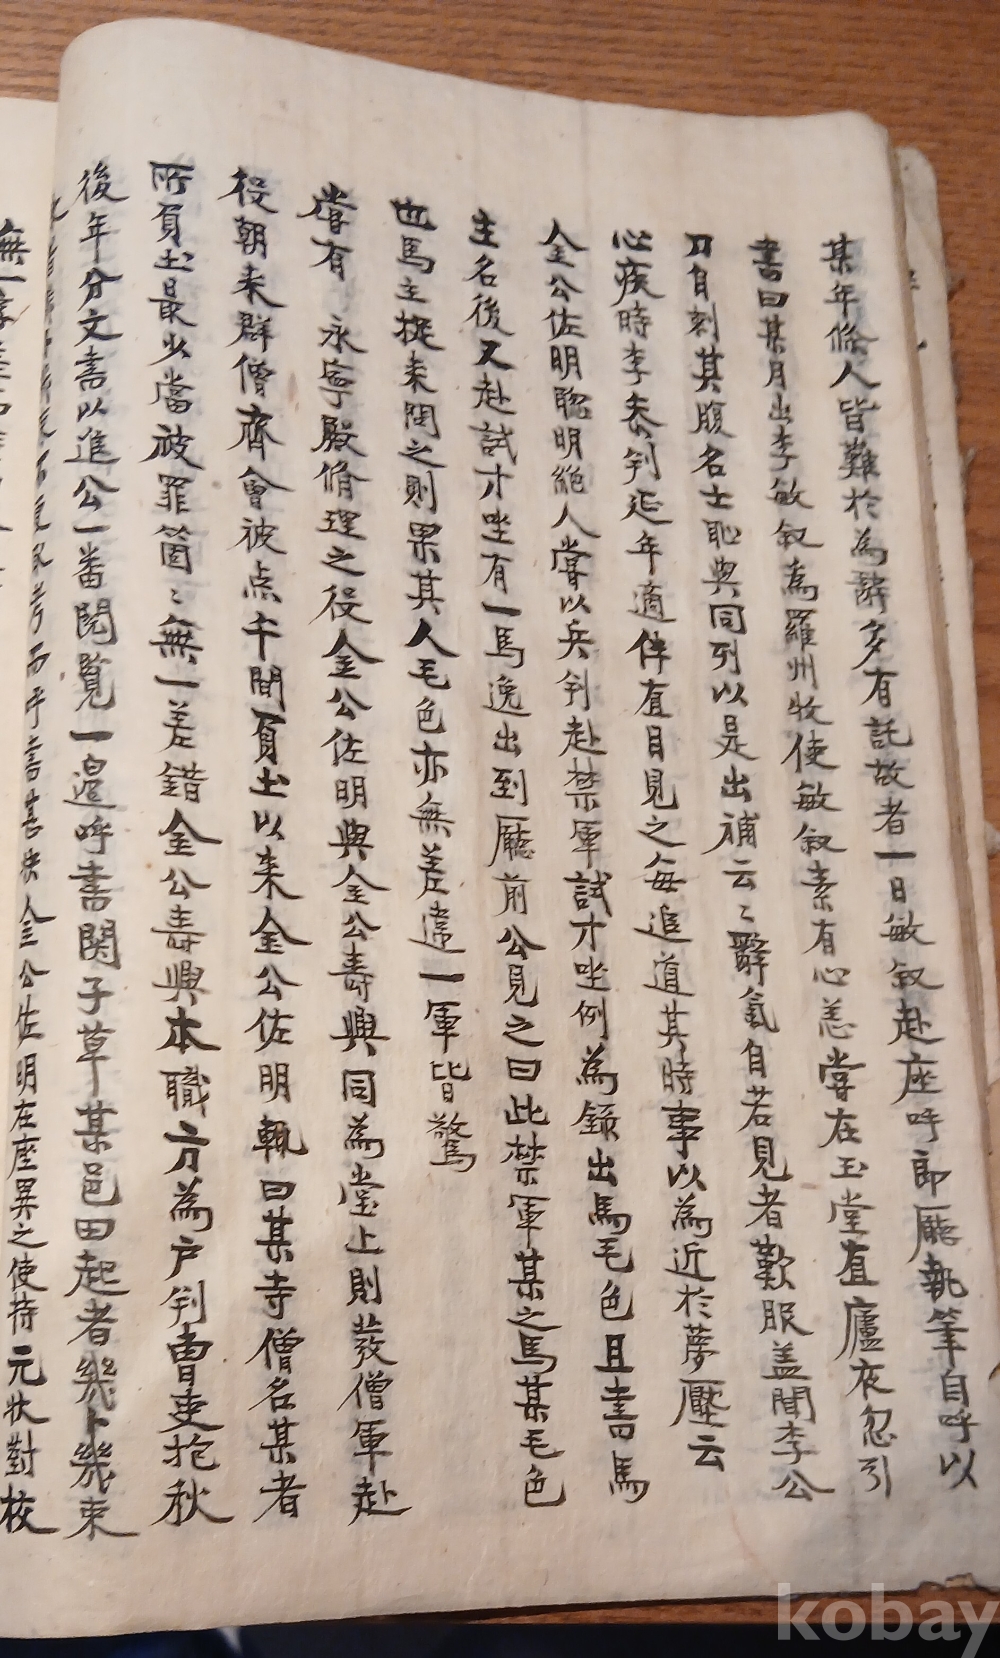 某年條人皆難於為辭多有託故者一日敏叙赴座呼郎廳執筆自呼以
書曰某月出李敏叙為羅州牧使敏叙素有心恙嘗在玉堂直廬夜忽引
刀自刺其腹名士恥與同列以是出補云〻辭氣自若見者歎服盖聞李公
心疾時李泰判延年適伴直目見之每追道其時事以為近於夢壓云
金公佐明聡明絶人嘗以兵判赴禁軍試才坐例為錄出馬毛色且書馬
主名後又赴試才坐有一馬逸出到廳前公見之曰此禁軍某之馬某毛色
也馬主捉来問之則果其人毛色亦無差違一軍皆驚
嘗有 永寧殿脩理之役金公佐明與金公壽興同為堂上則發僧軍赴
役朝来群僧齊會被点午間負土以来金公佐明輒曰某寺僧名某者
所負土最少當被罪箇〻無一差錯金公壽興本職方為户判曹吏抱秋
後年分文書以進公一番閱覽一邉呼書関子草某邑田起者幾卜幾束
金公佐明在座異之使持元状對校
無一